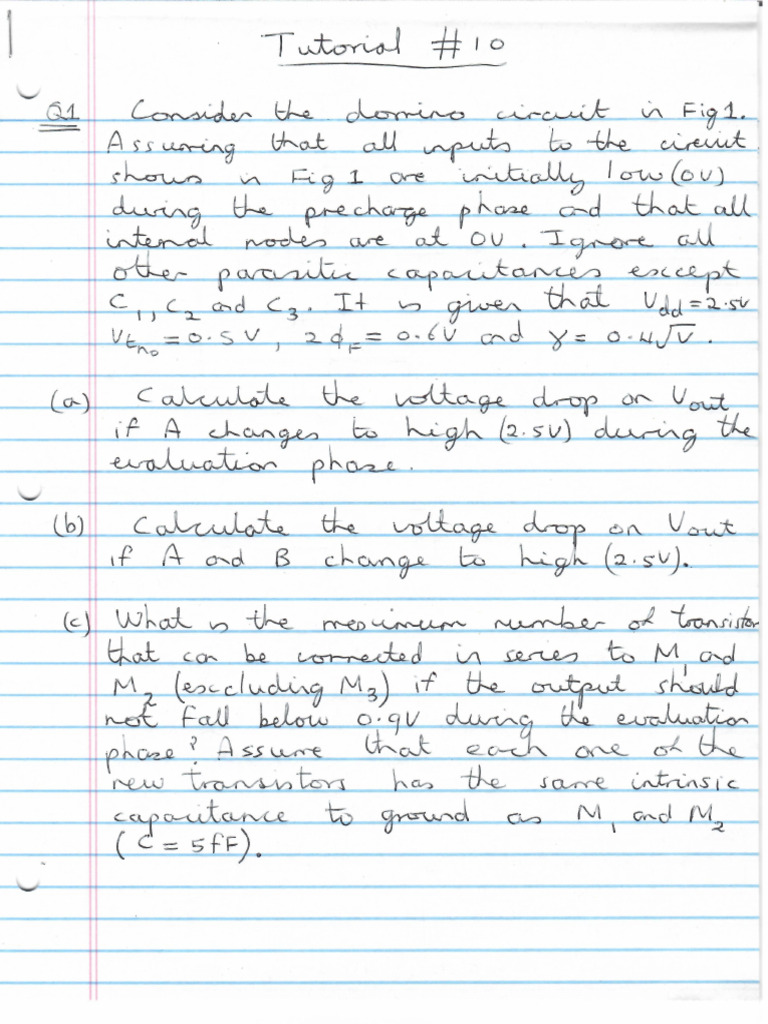 Tutorial #10
Q1 Consider the domino circuit in Fig 1.
Assuming that all inputs to the circuit
shown in Fig 1 are initially low (0V)
during the precharge phase and that all
internal nodes are at 0V. Ignore all
other parasitic capacitances except
C₁, C₂ and C₃. It is given that Vdd = 2.5V
Vtno = 0.5V, 2φF = 0.6V and γ = 0.4√V.
(a) Calculate the voltage drop on Vout
if A changes to high (2.5V) during the
evaluation phase.
(b) Calculate the voltage drop on Vout
if A and B change to high (2.5V).
(c) What is the maximum number of transistor
that can be connected in series to M₁ and
M₂ (excluding M₃) if the output should
not fall below 0.9V during the evaluation
phase? Assume that each one of the
new transistors has the same intrinsic
capacitance to ground as M₁ and M₂
(C = 5fF).